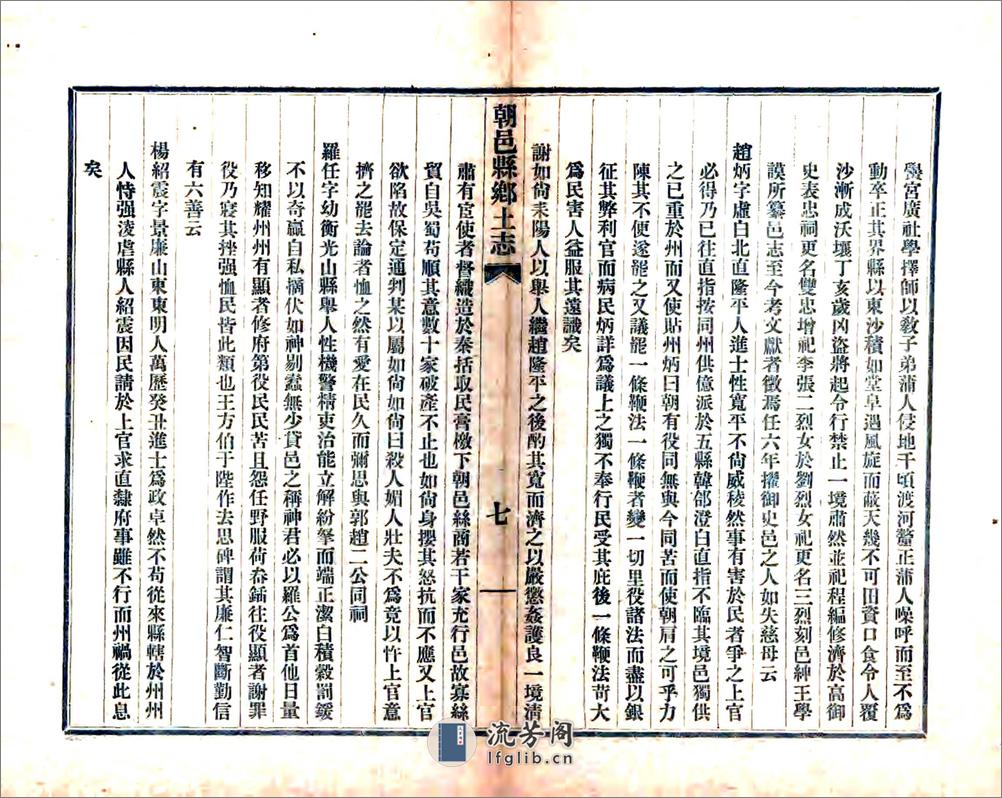 黌宮廣社學擇師以敎子弟蒲人侵地千頃渡河釐正蒲人噪呼而至不爲
動卒正其界縣以東沙積如堂阜遇風旋而蔽天幾不可田資口食令人覆
沙漸成沃壤丁亥歲凶盜將起令行禁止一境肅然並祀程編修濟於高御
史表忠祠更名雙忠增祀李張二烈女於劉烈女祀更名三烈刻邑紳王學
謨所纂邑志至今考文獻者徵焉任六年擢御史邑之人如失慈母云
趙炳字虛白北直隆平人進士性寬平不尙威稜然事有害於民者爭之上官
必得乃已往直指按同州供億派於五縣韓郃澄白直指不臨其境邑獨供
之已重於州而又使貼州炳曰朝有役同無與今同苦而使朝肩之可乎力
陳其不便遂罷之又議罷一條鞭法一條鞭者變一切里役諸法而盡以銀
征其弊利官而病民炳詳爲議上之獨不奉行民受其庇後一條鞭法苛大
爲民害人益服其遠識矣
謝如尙耒陽人以舉人繼趙隆平之後酌其寬而濟之以嚴懲姦護良一境淸
朝邑縣鄉土志
七
肅有宦使者督織造於秦括取民膏檄下朝邑絲商若干家充行邑故寡絲
貿自吳蜀苟順其意數十家破產不止也如尙身攖其怒抗而不應又上官
欲陷故保定通判某以屬如尙如尙曰殺人媚人壯夫不爲竟以忤上官意
擠之罷去論者恤之然有愛在民久而彌思與郭趙二公同祠
羅任字幼衡光山縣舉人性機警精吏治能立解紛挐而端正潔白積穀罰鍰
不以奇羸自私摘伏如神剔蠹無少貸邑之稱神君必以羅公爲首他日量
移知耀州州有顯者修府第役民民苦且怨任野服荷畚鍤往役顯者謝罪
役乃寢其挫强恤民皆此類也王方伯于陛作去思碑謂其廉仁智斷勤信
有六善云
楊紹震字景廉山東東明人萬歷癸丑進士爲政卓然不苟從來縣轄於州州
人恃强淩虐縣人紹震因民請於上官求直隸府事雖不行而州禍從此息
矣
流芳阁
lfglib.cn